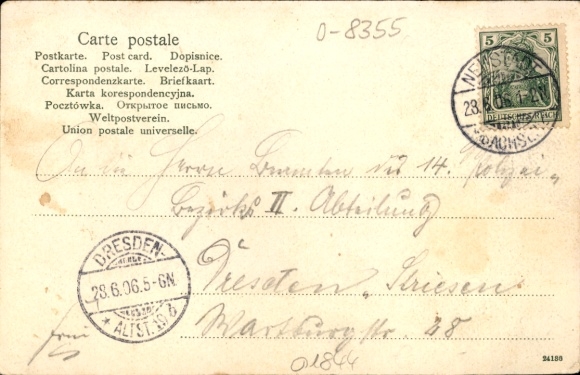 O-8355
Carte postale
Postkarte. Post card. Dopisnice.
Cartolina postale. Levelező-Lap.
Correspondenzkarte. Briefkaart.
Karta korespondencyjna.
Pocztówka. Открытое письмо.
Weltpostverein.
Union postale universelle.
5 5
DEUTSCHES REICH
NEUSTADT
28.6.06.
SACHSEN
An die Herren Beamten des 14. Polizei-
Bezirks II. Abteilung
Dresden-Striesen
Wartburgstr. 28
DRESDEN-
28.6.06.5-6N.
* ALTST. 19 b
frei
01844
24188